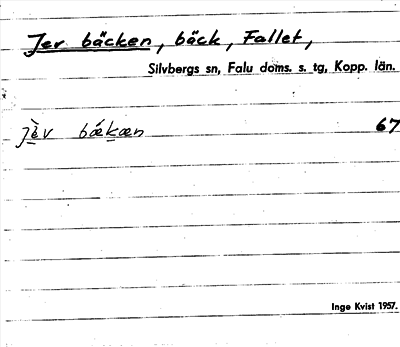 Jer bäcken, bäck, Fallet,
Silvbergs sn, Falu doms. s. tg, Kopp. län.
jèv bǽkæn 67
Inge Kvist 1957.